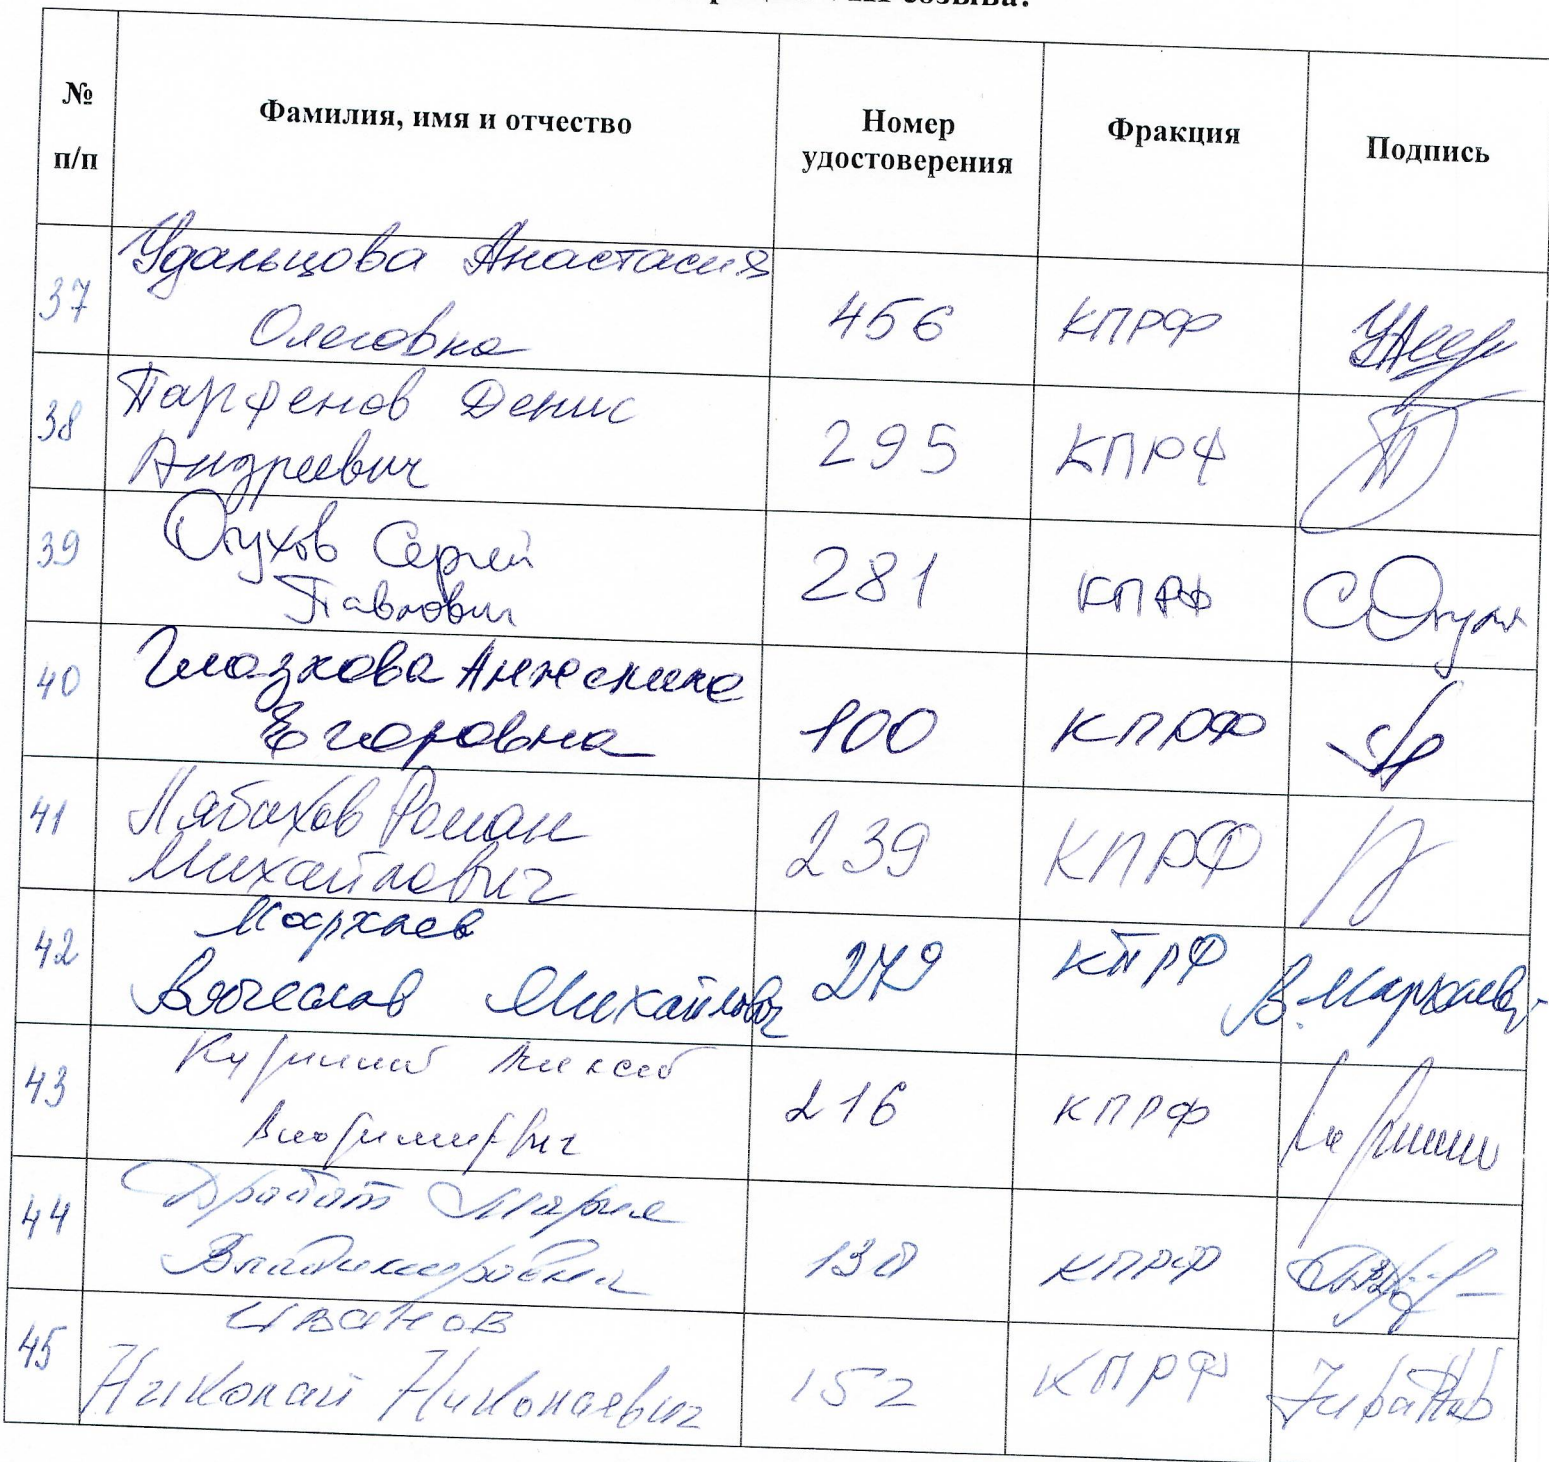 созыва:
№ п/п
Фамилия, имя и отчество
Номер удостоверения
Фракция
Подпись
37 Удальцова Анастасия
Олеговна
456 КПРФ
38 Парфенов Денис
Андреевич
295 КПРФ
39 Обухов Сергей
Павлович
281 КПРФ С Обухов
40 Глазкова Анжелика
Егоровна
100 КПРФ
41 Лябихов Роман
Михайлович
239 КПРФ
42 Мархаев
Вячеслав Михайлович
279 КПРФ В. Мархаев
43 Куринный Алексей
Владимирович
216 КПРФ
44 Дробот Мария
Владимировна
138 КПРФ
45 Иванов
Николай Николаевич
152 КПРФ